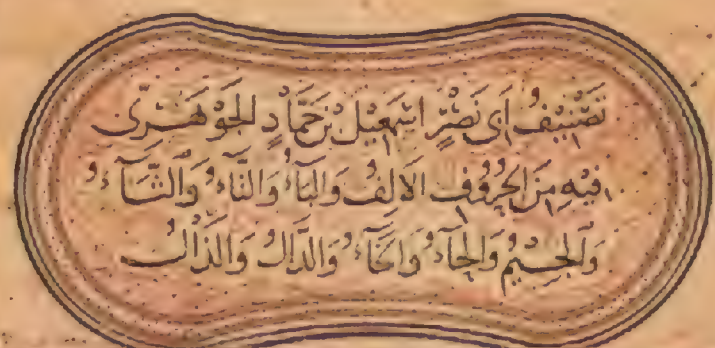 تَصْنِيفُ أَبِي نَصْرٍ إِسْمٰعِيلَ بْنِ حَمَّادٍ الْجَوْهَرِيِّ
فِيهِ مِنَ الْحُرُوفِ الْأَلِفُ وَالْبَاءُ وَالتَّاءُ وَالثَّاءُ
وَالْجِيمُ وَالْحَاءُ وَالْخَاءُ وَالدَّالُ وَالذَّالُ